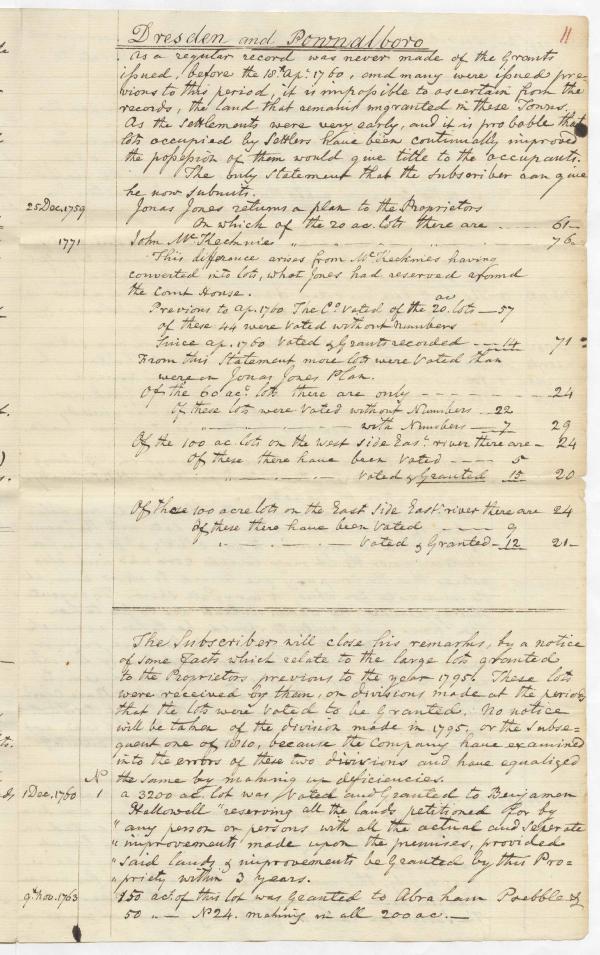 11
Dresden and Pownalboro
As a regular record was never made of the Grants
issued, before the 18th Ap. 1760, and many were issued pre=
vious to this period, it is impossible to ascertain from the
records, the land that remains ungranted in these Towns.
As the settlements were very early, and it is probable that
lots occupied by settlers have been continually improved
the possession of them would give title to the occupants.
The only statement that the subscriber can give
he now submits.
25 Dec. 1759 Jonas Jones returns a plan to the Proprietors
on which of the 20 ac. lots there are - - - 61-
1771 John McKechnies " " " 76-
This difference arises from McKechnies having
converted into lots, what Jones had reserved around
the Court House.
Previous to Ap. 1760 The Co. Voted of the 20 ac lots - 57
of these 44 were Voted without numbers
Since Ap. 1760 Voted & Grants recorded - - 14 71
From this Statement more lots were Voted than
were on Jonas Jones Plan.
Of the 60 ac. lots there are only - - - - 24
Of these lots were Voted without Numbers - 22
" - - - - with Numbers - 7 29
Of the 100 ac lots on the west side Eas. river there are - 24
Of these there have been Voted - - - 5
" - - - - Voted & Granted 15 20
Of these 100 acre lots on the East Side East river there are 24
of these there have been Voted - - - 9
" - - - - Voted & Granted - 12 21-
The Subscriber will close his remarks, by a notice
of some facts which relate to the large lots granted
to the Proprietors, previous to the year 1795. These lots
were received by them, on divisions made at the periods
that the lots were Voted to be Granted. No notice
will be taken of the division made in 1795, or the subse=
quent one of 1810, because the Company have examined
into the errors of these two divisions and have equalized
the same by making up deficiencies.
1 Dec. 1760 No 1 a 3200 ac. lot was Voted and Granted to Benjamin
Hallowell "reserving all the lands petitioned for by
" any person or persons with all the actual and seperate
" improvements made upon the premises, provided
" said lands & improvements be Granted by this Pro=
" priety within 3 years.
9th Nov. 1763 150 ac. of this lot was Granted to Abraham Prebble &
50 " - No 24. making in all 200 ac. -